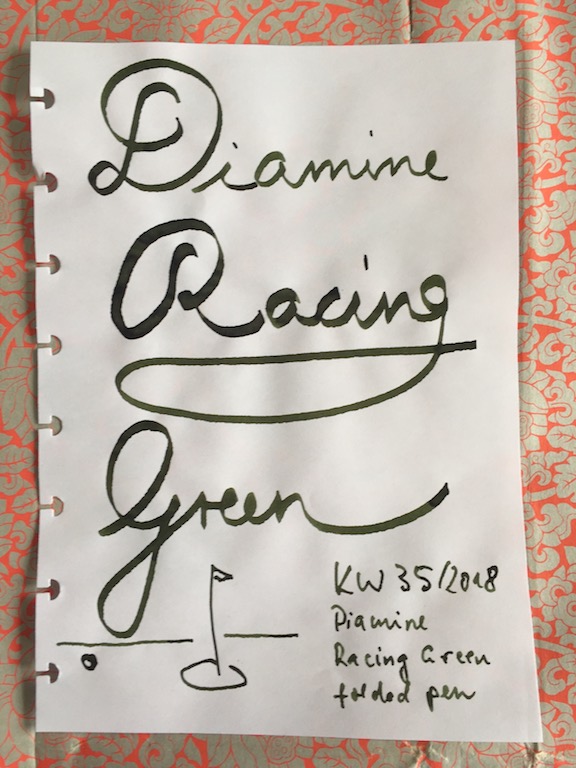 Diamine
Racing
Green
KW 35/2018
Diamine
Racing Green
folded pen